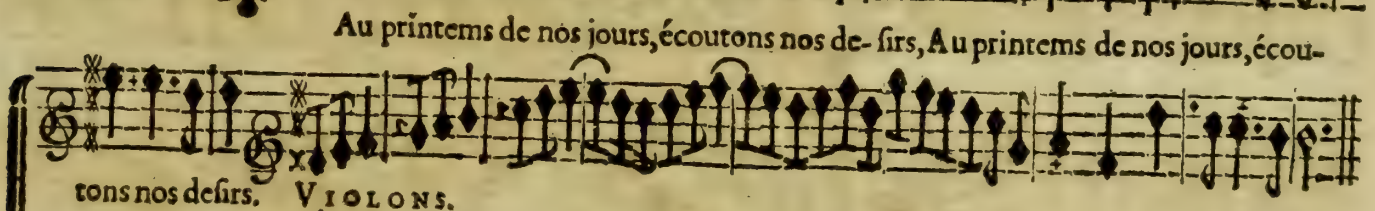 Au printems de nos jours, écoutons nos de- ſirs, Au printems de nos jours, écou-
tons nos deſirs. VIOLONS.